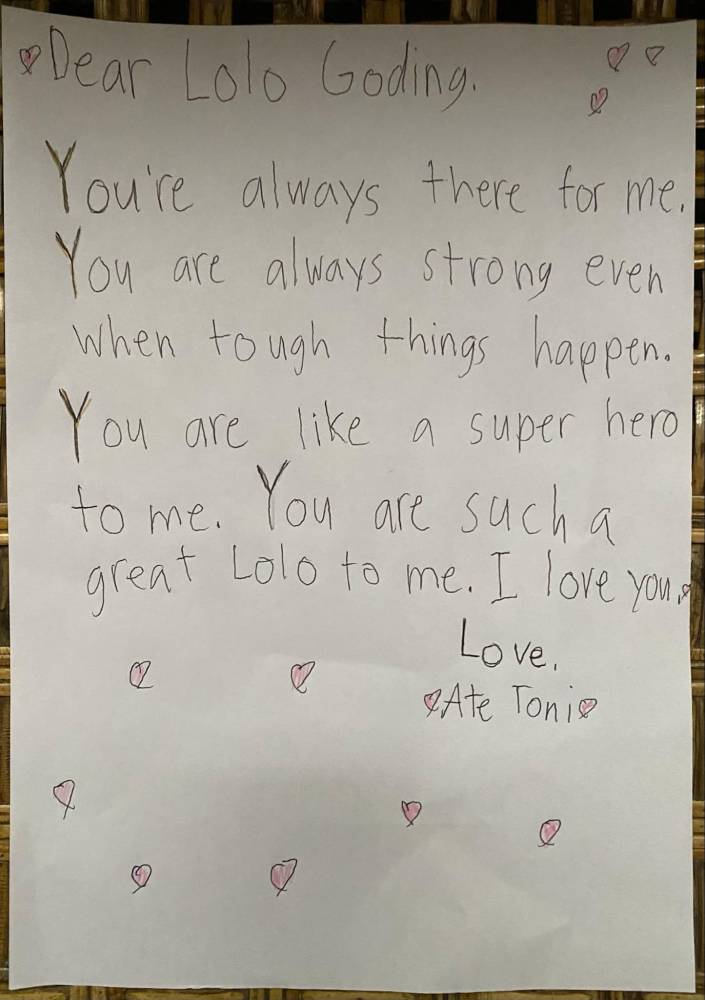 Dear Lolo Goding.
You're always there for me.
You are always strong even
when tough things happen.
You are like a super hero
to me. You are such a
great Lolo to me. I love you.
Love,
Ate Toni